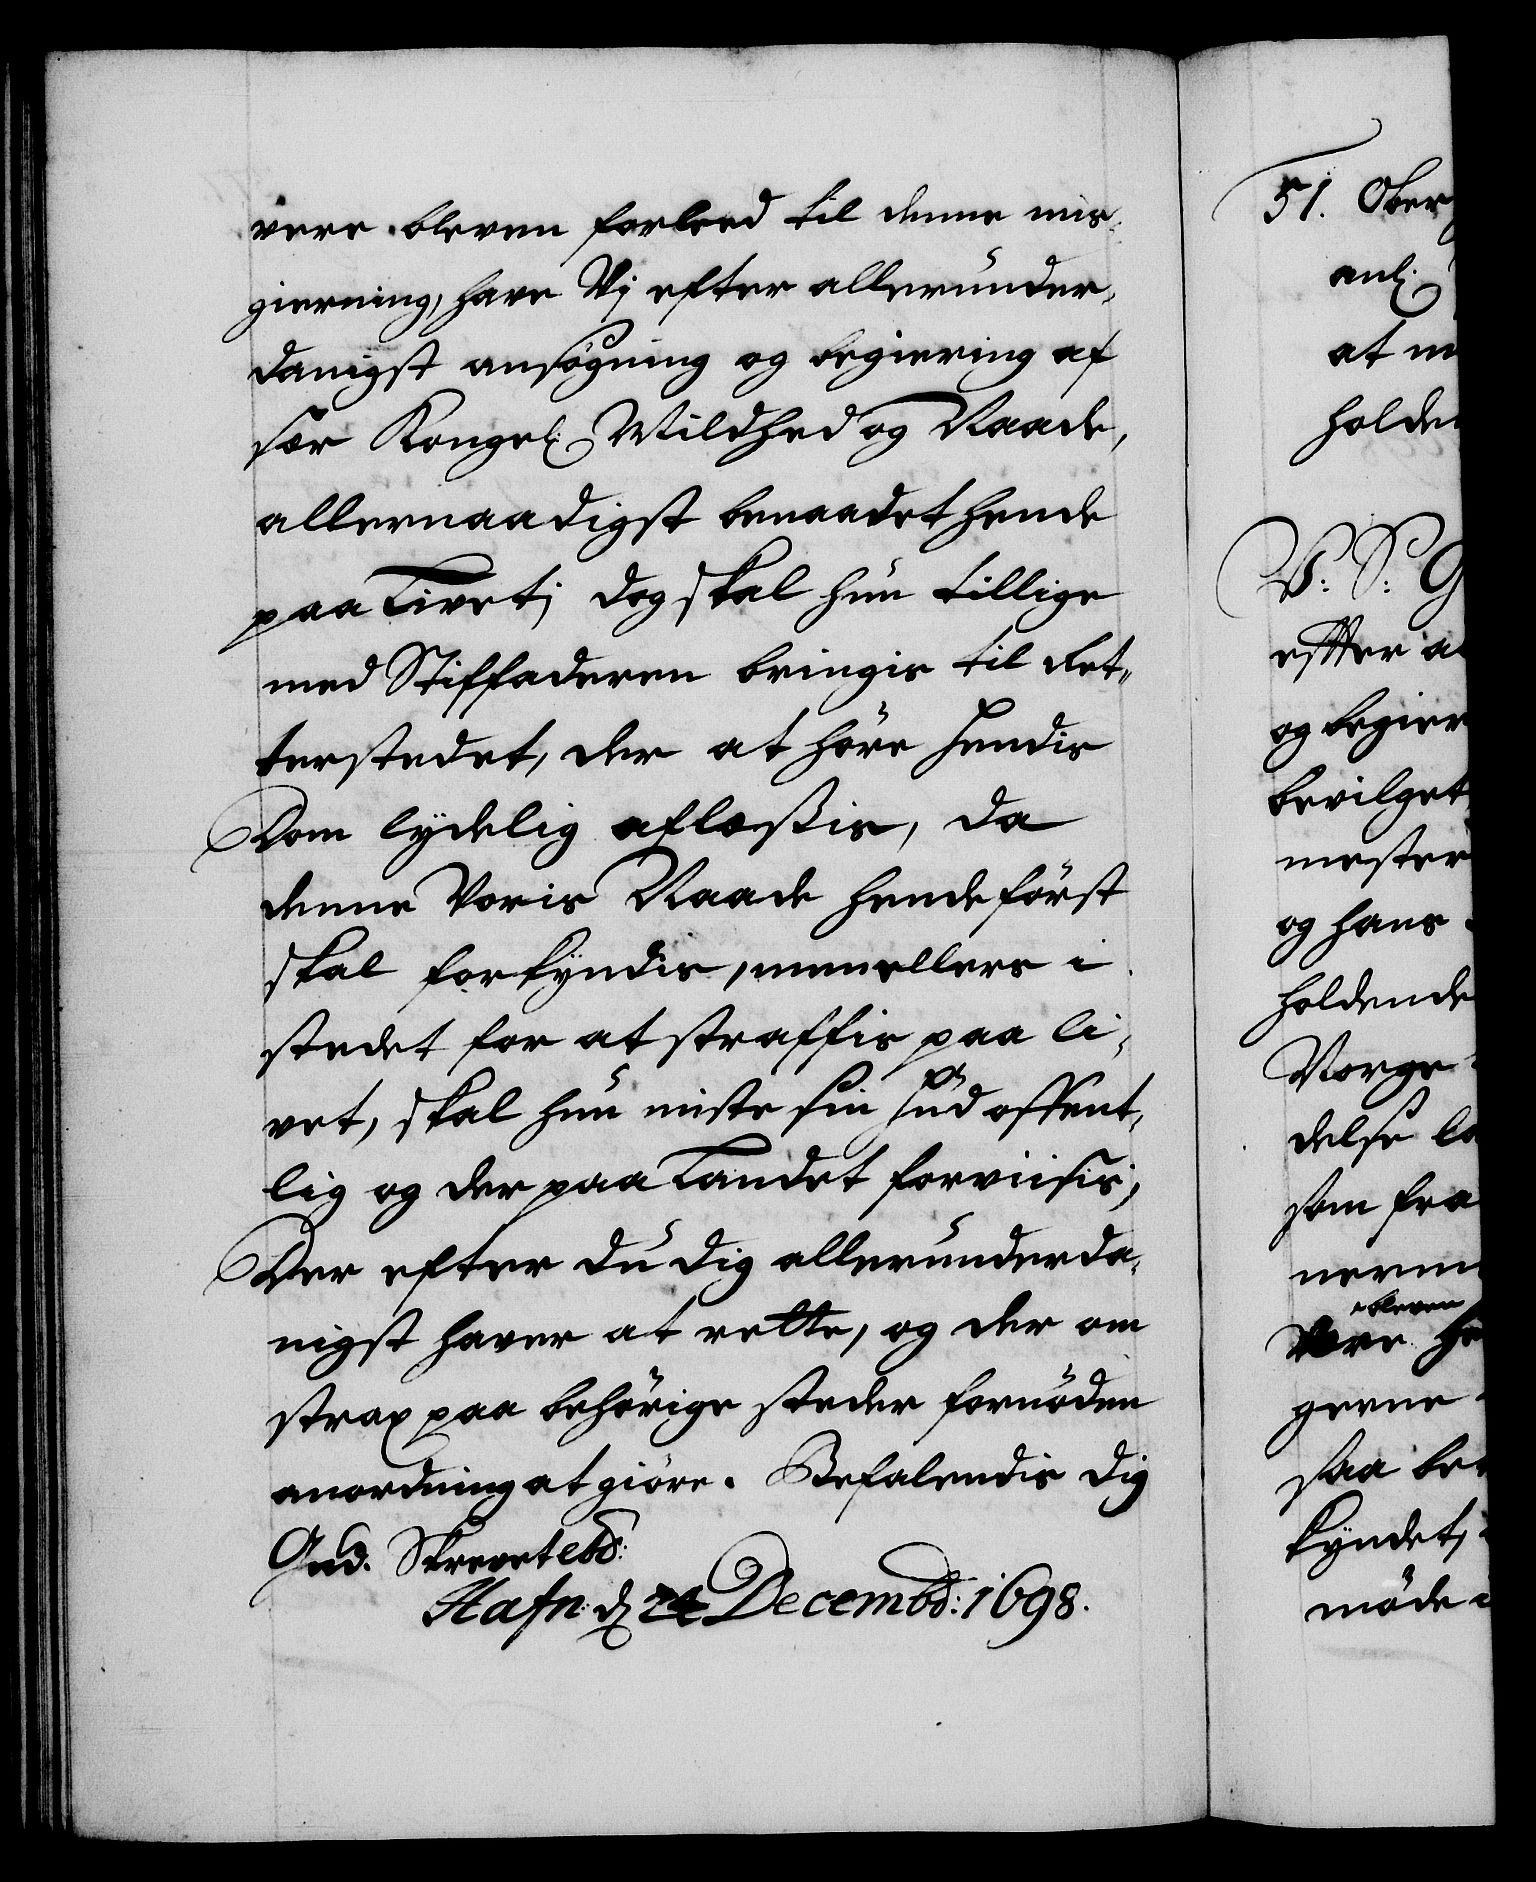 vere bleven forleed til denne mis-
gierning, have Vj efter allerunder-
danigst ansögning og begiering af
sær Kongel: Mildhed og Naade,
allernaadigst benaadet hende
paa Livet; dog skal hun tillige
med Stiffaderen bringis til Ret-
terstedet, der at höre hendis
Dom lydelig aflæssis, da
denne Voris Naade hende först
skal forkyndis, mens ellers i
stedet for at straffis paa li-
vet, skal hun miste sin Hud offent-
lig og der paa Landet forviisis;
Der efter du dig allerunderda-
nigst haver at rette, og der om
strax paa behörige steder fornöden
anordning at giöre. Befalendis dig
Gud. Skrevet ebd:
Hafn: d. 24 Decembd: 1698.
51. Ober
anl:
at
holde
V: S: G
efter a
og begier
bevilget
mester
og hans
holdende
Norge
delse la
som fra
bleven
Vere he
gerne
saa be
kyndet,
möde